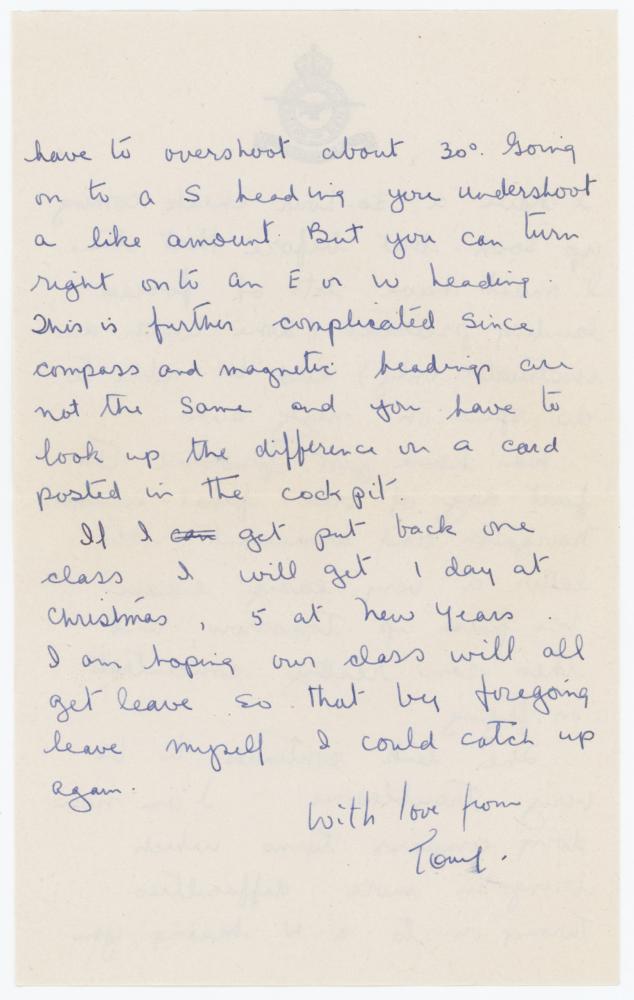 have to overshoot about 30°. Going
on to a S heading you undershoot
a like amount. But you can turn
right onto an E or W heading.
This is further complicated since
compass and magnetic headings are
not the same and you have to
look up the difference on a card
posted in the cockpit
If I can get put back one
class I will get 1 day at
Christmas, 5 at New Years.
I am hoping our class will all
get leave so that by foregoing
leave myself I could catch up
again.
With love from
Tony.